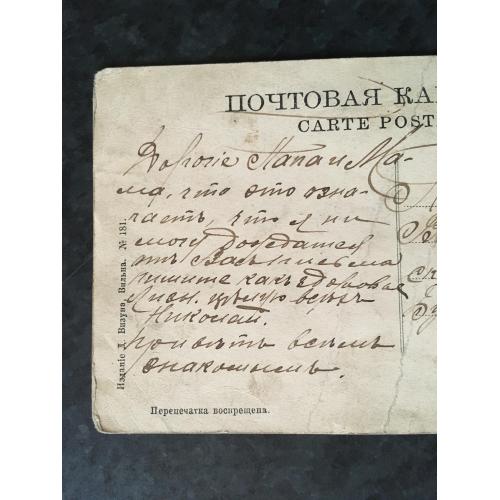 ПОЧТОВАЯ КА
CARTE POST
Дорогіе Папа и Ма-
ма, что это озна-
чаетъ, что я ни
могу дождатся
отъ Васъ письма
пишите какъ здоровье
цѣлую всѣхъ
Николай.
привѣтъ всѣмъ
знакомымъ.
Изданіе Д. Визуна, Вильна. № 181.
Перепечатка воспрещена.